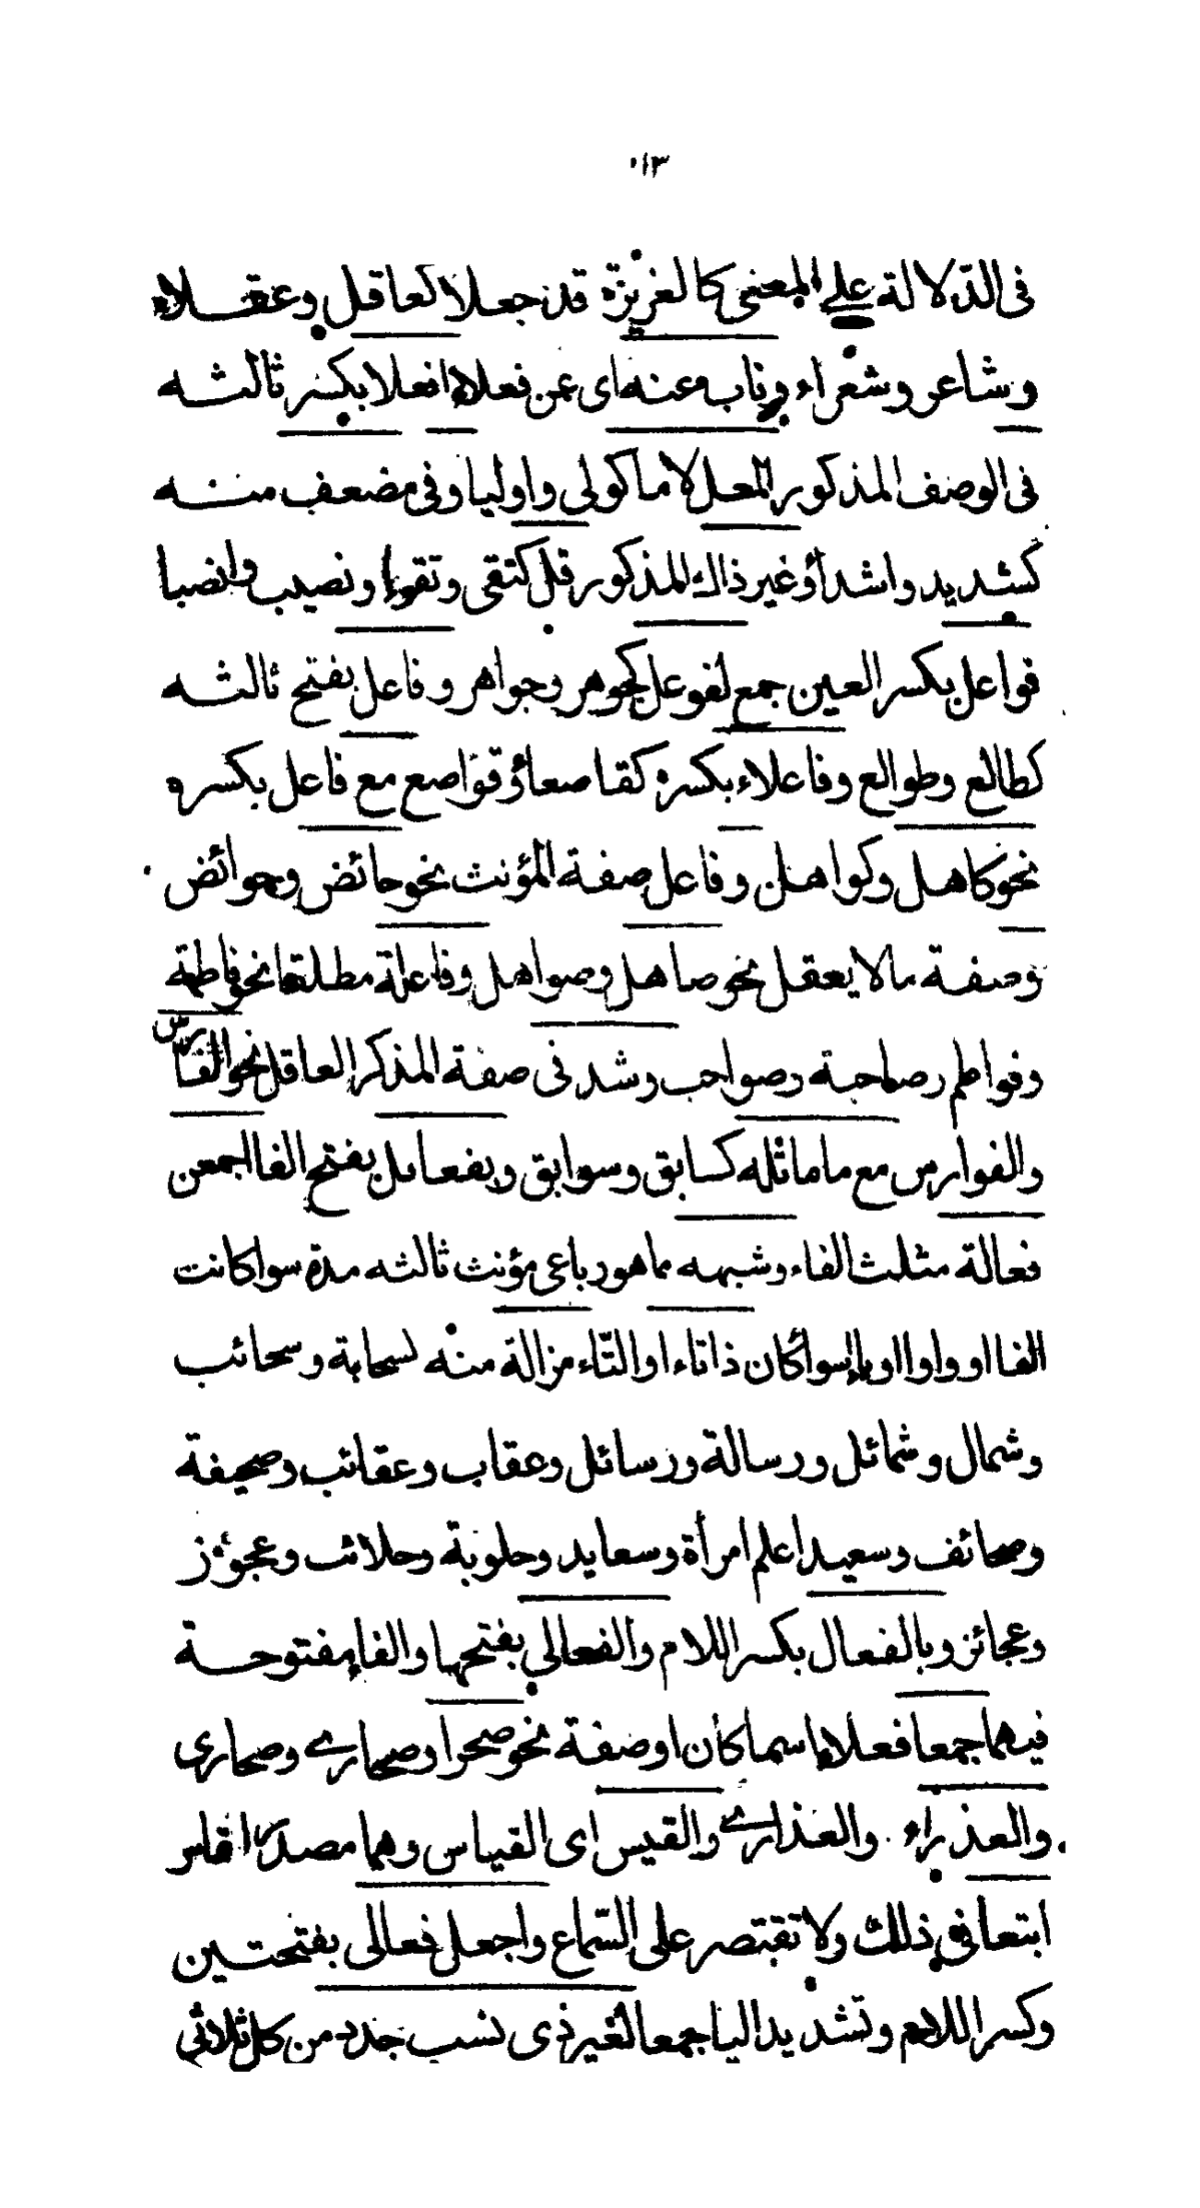 ١١٣
فى الدّلالة على المعنى كالغريزة قد جعلا كعاقل وعقلاء
وشاعر وشعراء وناب عنه اى عن فعلاء افعلا بكسر ثالثه
فى الوصف المذكور المعل لاما كولى واوليا وفى مضعف منه
كشديد واشدأ وغير ذاك المذكور قل كتقى وتقواء ونصيب وانصبا
فواعل بكسر العين جمع لفوعل كجوهر وجواهر وفاعل بفتح ثالثه
كطالع وطوالع وفاعلاء بكسره كقاصعاؤ قواصع مع فاعل بكسره
نحو كاهل وكواهل وفاعل صفة المؤنث نحو حائض وحوائض
وصفة مالا يعقل نحو صاهل وصواهل وفاعلة مطلقا نحو فاطمة
وفواطم وصاحبة وصواحب وشد فى صفة المذكر العاقل نحو الفارس
والفوارس مع ما ماثله كسابق وسوابق وبفعائل بفتح الفا اجمعن
فعالة مثلث الفاء وشبهه مما هو رباعى مؤنث ثالثه مدة سوا كانت
الفا او واوا او ياء سوأ كان ذا تاء او التّاء مزالة منه كسحابة وسحائب
وشمال وشمائل ورسالة ورسائل وعقاب وعقائب وصحيفة
وصحائف وسعيد اعلم امرأة وسعايد وحلوبة وحلائب وعجوز
وعجائز وبالفعال بكسر اللام والفعالى بفتحها والفاء مفتوحة
فيهما جمعا فعلاء اسما كان اوصفة نحو صحرا وصحارى وصحارى
والعذراء والعذارى والقيس اى القياس وهما مصدرا قاس
ابتعا فى ذلك ولا تقتصر على السّماع واجعل فعالى بفتحتين
وكسر اللام وتشديد اليا جمعا لغير ذى نسب جدد من كل ثلاثى